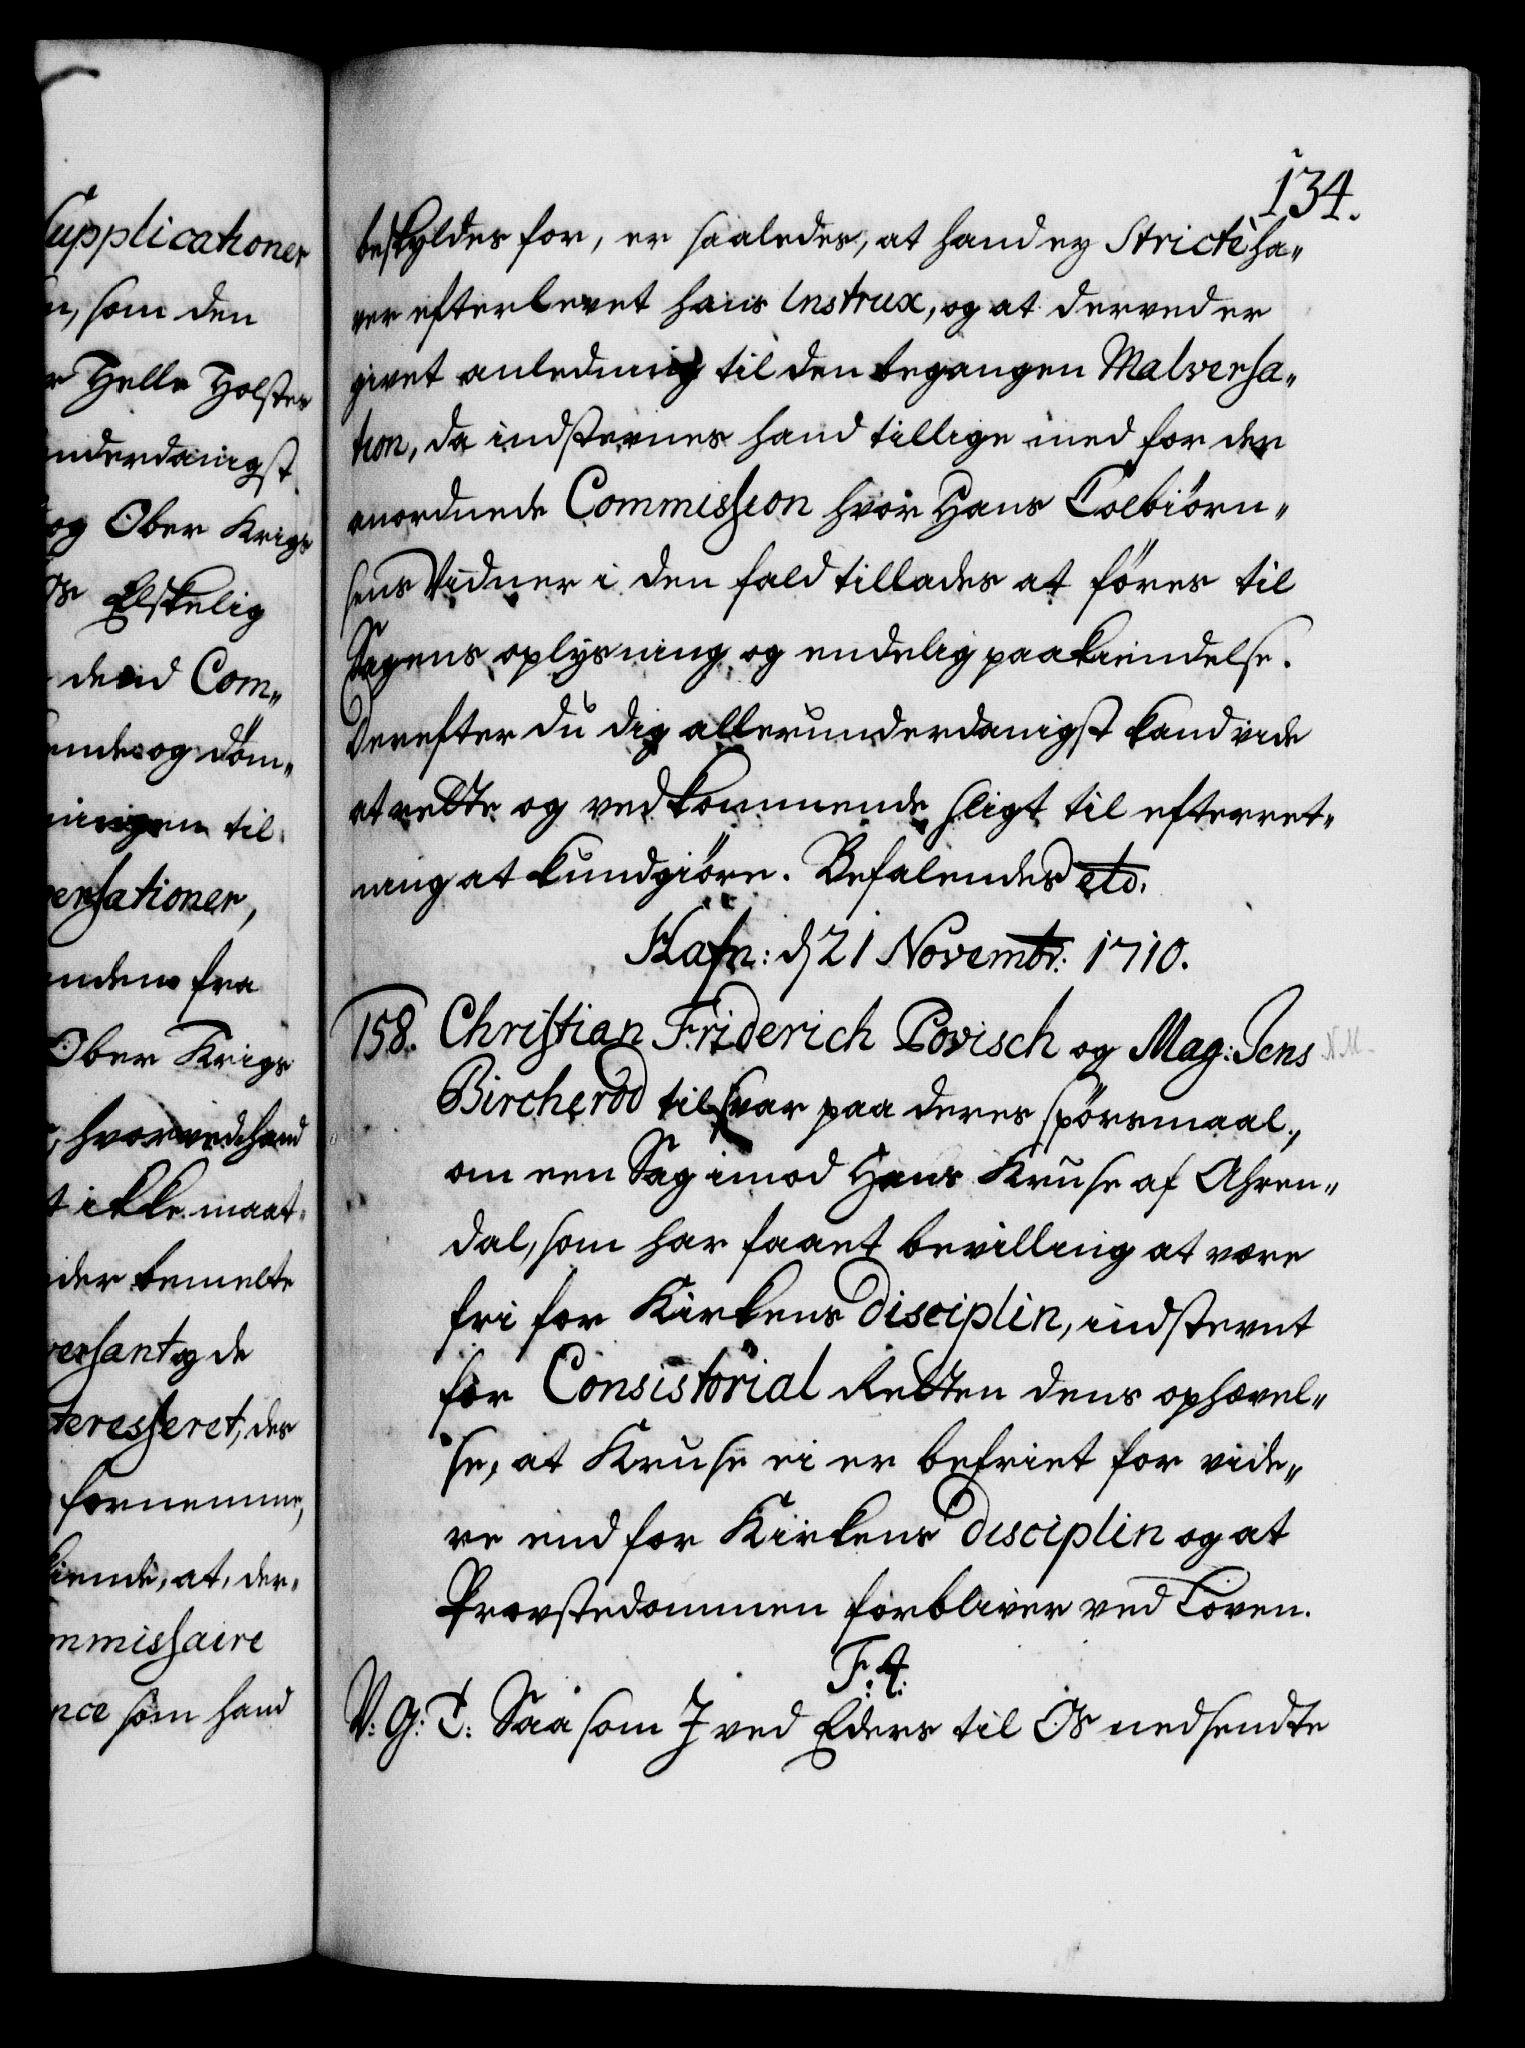 Supplicationer
som den
Helle Holster
underdanigst
og Ober Krigs
Os Elskelig
dend Com„
og döm„
til„
versationer,
fra
Ober Krigs
hvorved hand
ikke maat„
bemelte
versant og de
teresseret, des
fornemme,
kiende, at, der„
ommissaire
nce som hand
134.
beskyldes for, er saaledes, at hand ey Stricté ha„
ver efterlevet hans Instrux, og at derved er
givet anledning til den begangen Malversa„
tion, da indstevnes hand tillige med for den
anordnede Commission hvor Hans Colbiörn„
sens Vidner i den fald tillades at föres til
Sagens oplysning og endelig paakiendelse.
Derefter du dig allerunderdanigst kand vide
at rette og vedkommende sligt til efterret„
ning at kundgiöre. Befalendes etc.
Hafn: d 21 Novembr: 1710.
158. Christian Friderich Povisch og Mag: Jens
N.M.
Bircherod til svar paa deres spörsmaal,
om een Sag imod Hans Kruse af Ahren„
dal, som har faaet bevilling at være
fri for Kirkens disciplin, indstevnt
for Consistorial Retten dens ophævel„
se, at Kruse ei er befriet for vide„
re end for Kirkens disciplin og at
Provstedommen forbliver ved Loven.
F. 4.
V: G: T: Saa som I ved Eders til Os nedsendte